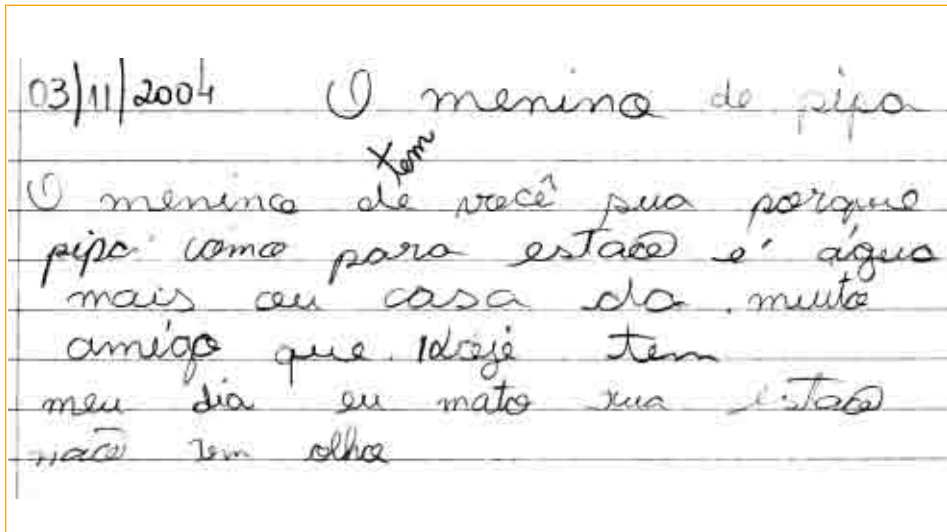 03/11/2004 O menino de pipa
tem
O menino de você sua porque
pipa como para estão é água
mais ou casa da muito
amigo que hoje tem
meu dia eu mato rua estão
não tem olho